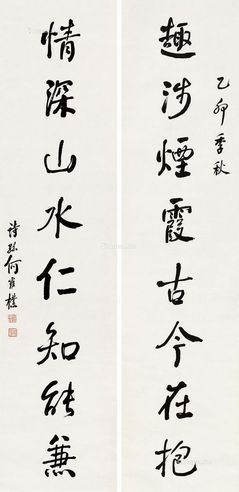 乙卯季秋
趣涉煙霞古今在抱
情深山水仁知能兼
詩孫何維樸